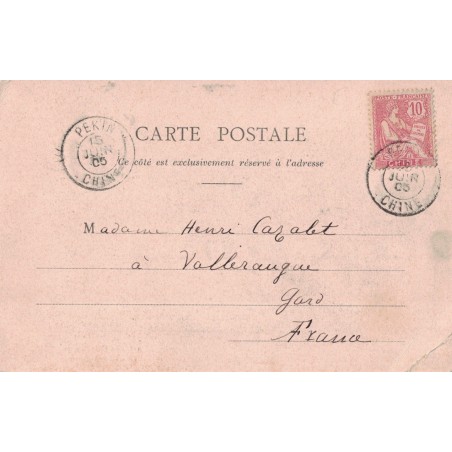 PEKIN
15
JUIN
05
CHINE
10
CARTE POSTALE
Ce côté est exclusivement réservé à l'adresse
JUIN
05
CHINE
Madame Henri Cazalet
à Valleraugue
Gard
France